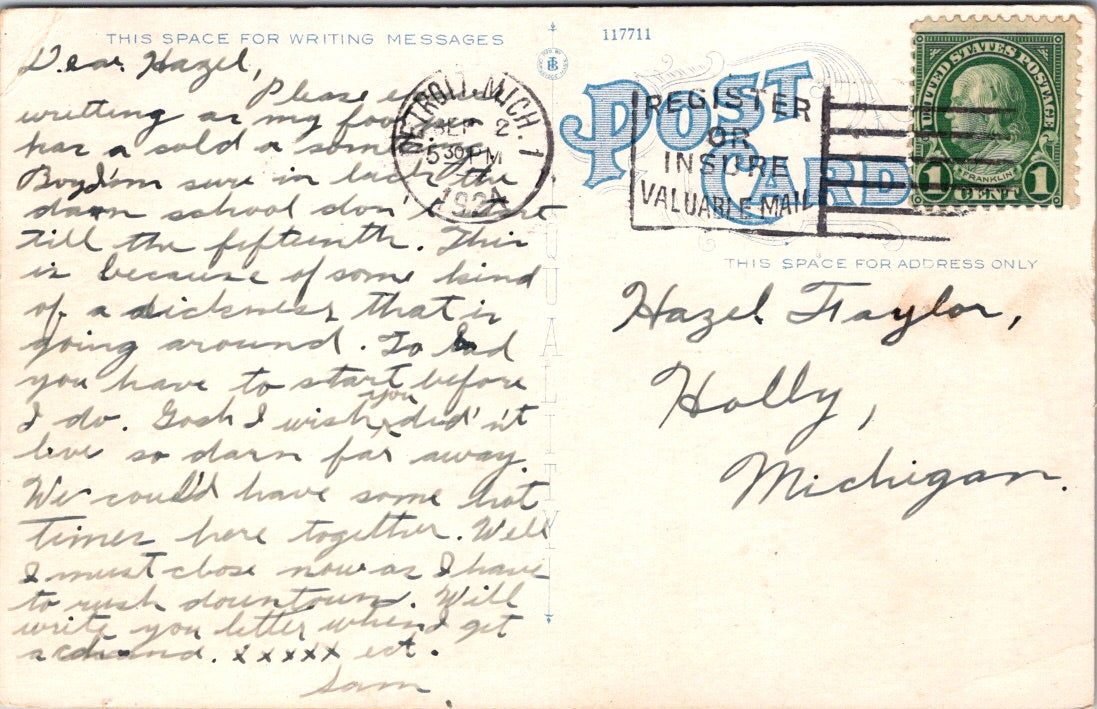 THIS SPACE FOR WRITING MESSAGES
Dear Hazel,
Please
writting as my
has a sold a some
Boy I'm sure in luck the
darn school don't start
till the fifteenth. This
is because of some kind
of a sickness that is
going around. To bad
you have to start before
I do. Gosh I wish you did'nt
live so darn far away.
We could have some hot
times here together. Well
I must close now as I have
to rush downtown. Will
write you letter when I get
a chand. xxxxx ect.
Sam
117711
POST
CARD
DETROIT, MICH. 1
SEP 2
5 30 PM
192
REGISTER
OR
INSURE
VALUABLE MAIL
UNITED STATES POSTAGE
FRANKLIN
1 CENT 1
THIS SPACE FOR ADDRESS ONLY
Hazel Taylor,
Holly,
Michigan.
QUALITY